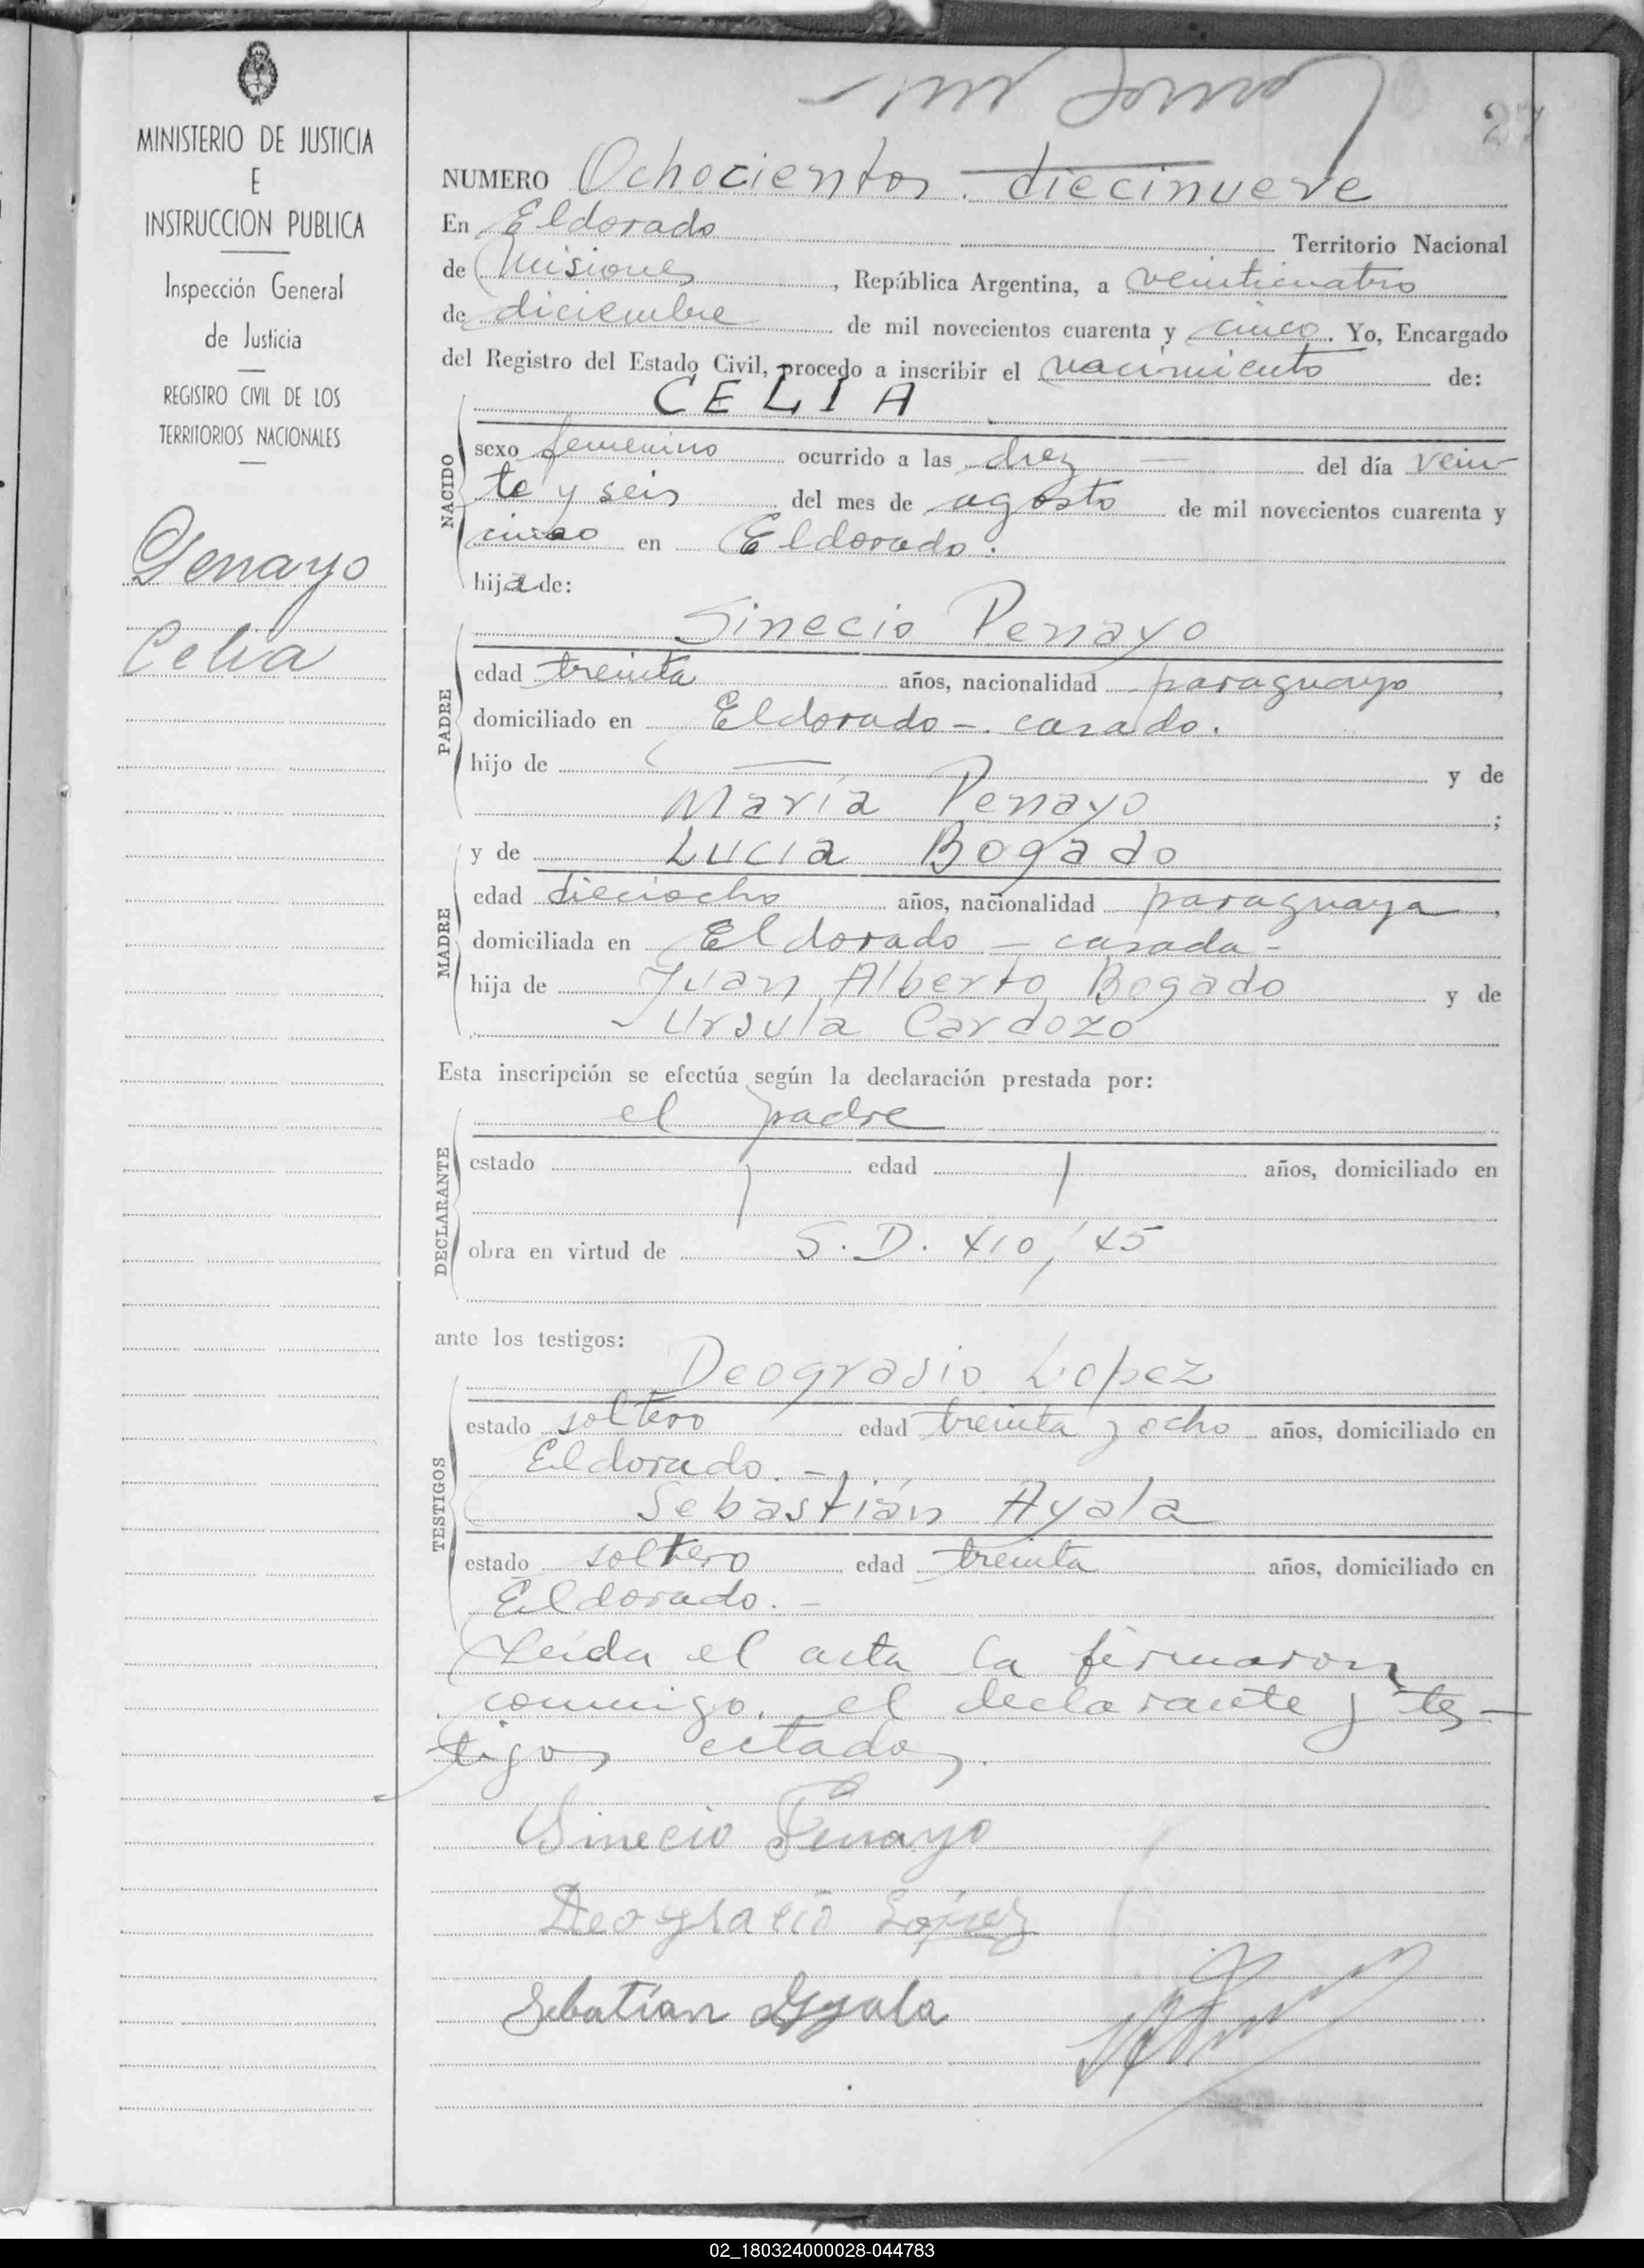 27
MINISTERIO DE JUSTICIA
E
INSTRUCCION PUBLICA
Inspección General
de Justicia
REGISTRO CIVIL DE LOS
TERRITORIOS NACIONALES
Penayo
Celia
NUMERO Ochocientos diecinueve
En Eldorado Territorio Nacional
de Misiones, República Argentina, a veinticuatro
de diciembre de mil novecientos cuarenta y cinco. Yo, Encargado
del Registro del Estado Civil, procedo a inscribir el nacimiento de:
CELIA
NACIDO
sexo femenino ocurrido a las diez — del día vein-
te y seis del mes de agosto de mil novecientos cuarenta y
cinco en Eldorado.
hija de:
Sinecio Penayo
PADRE
edad treinta años, nacionalidad paraguayo,
domiciliado en Eldorado -. casado.
hijo de — y de
María Penayo;
y de Lucia Bogado
MADRE
edad dieciocho años, nacionalidad paraguaya,
domiciliada en Eldorado - casada -
hija de Juan Alberto Bogado y de
Ursula Cardozo
Esta inscripción se efectúa según la declaración prestada por:
el padre
DECLARANTE
estado edad años, domiciliado en
obra en virtud de S. D. 410/45
ante los testigos:
Deograsio Lopez
TESTIGOS
estado soltero edad treinta y ocho años, domiciliado en
Eldorado. -
Sebastián Ayala
estado soltero edad treinta años, domiciliado en
Eldorado. -
Leida el acta la firmaron
conmigo. el declarante y tes-
tigos citados.
Sinecio Penayo
Deogracio López
Sebatían Ayala
02_180324000028-044783